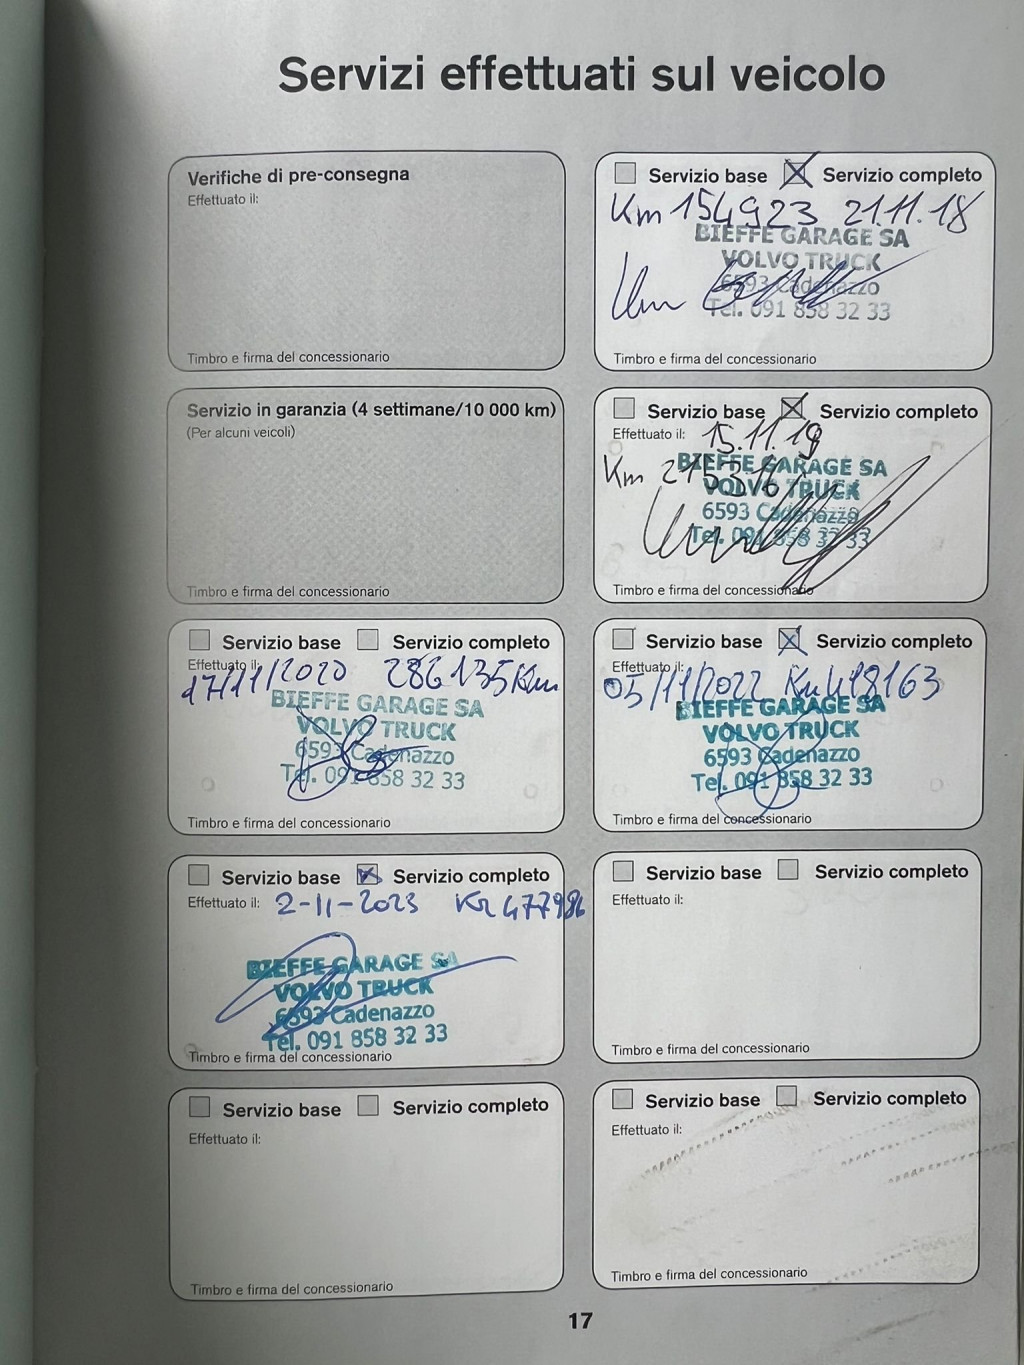 Servizi effettuati sul veicolo
Verifiche di pre-consegna
Effettuato il:
Timbro e firma del concessionario
Servizio base Servizio completo
Km 154923 21.11.18
BIEFFE GARAGE SA
VOLVO TRUCK
6593 Cadenazzo
Tel. 091 858 32 33
Timbro e firma del concessionario
Servizio in garanzia (4 settimane/10 000 km)
(Per alcuni veicoli)
Timbro e firma del concessionario
Servizio base Servizio completo
Effettuato il: 15.11.19
Km
BIEFFE GARAGE SA
VOLVO TRUCK
6593 Cadenazzo
Tel. 091 858 32 33
Timbro e firma del concessionario
Servizio base Servizio completo
Effettuato il:
17/11/2020 286135 Km
BIEFFE GARAGE SA
VOLVO TRUCK
6593 Cadenazzo
Tel. 091 858 32 33
Timbro e firma del concessionario
Servizio base Servizio completo
Effettuato il:
05/11/2022 Km 418163
BIEFFE GARAGE SA
VOLVO TRUCK
6593 Cadenazzo
Tel. 091 858 32 33
Timbro e firma del concessionario
Servizio base Servizio completo
Effettuato il: 2-11-2023 Km 477986
BIEFFE GARAGE SA
VOLVO TRUCK
6593 Cadenazzo
Tel. 091 858 32 33
Timbro e firma del concessionario
Servizio base Servizio completo
Effettuato il:
Timbro e firma del concessionario
Servizio base Servizio completo
Effettuato il:
Timbro e firma del concessionario
Servizio base Servizio completo
Effettuato il:
Timbro e firma del concessionario
17